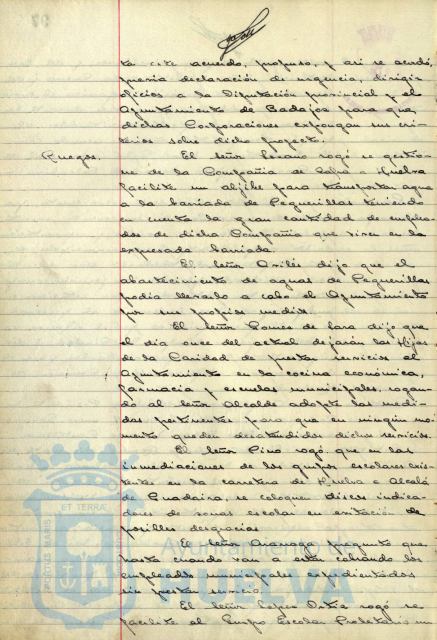 ta este acuerdo, propuso, y así se acordó,
previa declaración de urgencia, dirigir
oficios a la Diputación provincial y al
Ayuntamiento de Badajoz para que
dichas Corporaciones expongan sus cri-
terios sobre dicho proyecto.
Ruegos.
El señor Lozano rogó se gestio-
ne de la Compañía de Zafra a Huelva
facilite un aljibe para transportar agua
a la barriada de Peguerillas teniendo
en cuenta la gran cantidad de emplea-
dos de dicha Compañía que vive en la
expresada barriada.
El señor Avilés dijo que el
abastecimiento de aguas de Peguerillas
podía llevarlo a cabo el Ayuntamiento
por sus propios medios.
El señor Ponce de Lara dijo que
el día once del actual dejarán las Hijas
de la Caridad de prestar servicios al
Ayuntamiento en la cocina económica,
farmacia y escuelas municipales, rogan-
do al señor Alcalde adopte las medi-
das pertinentes para que en ningún mo-
mento queden desatendidos dichos servicios.
El señor Pino rogó que en las
inmediaciones de los grupos escolares exis-
tentes en la carretera de Huelva a Alcalá
de Guadaira, se coloquen discos indica-
dores de zonas escolar en evitación de
posibles desgracias.
El señor preguntó que
hasta cuando van a estar cobrando los
empleados municipales expedientados
sin prestar servicio.
El señor López Ortía rogó se
facilite al Grupo Escolar Proletario un
PORTUS MARIS ET TERRAE
Ayuntamiento
HUELVA